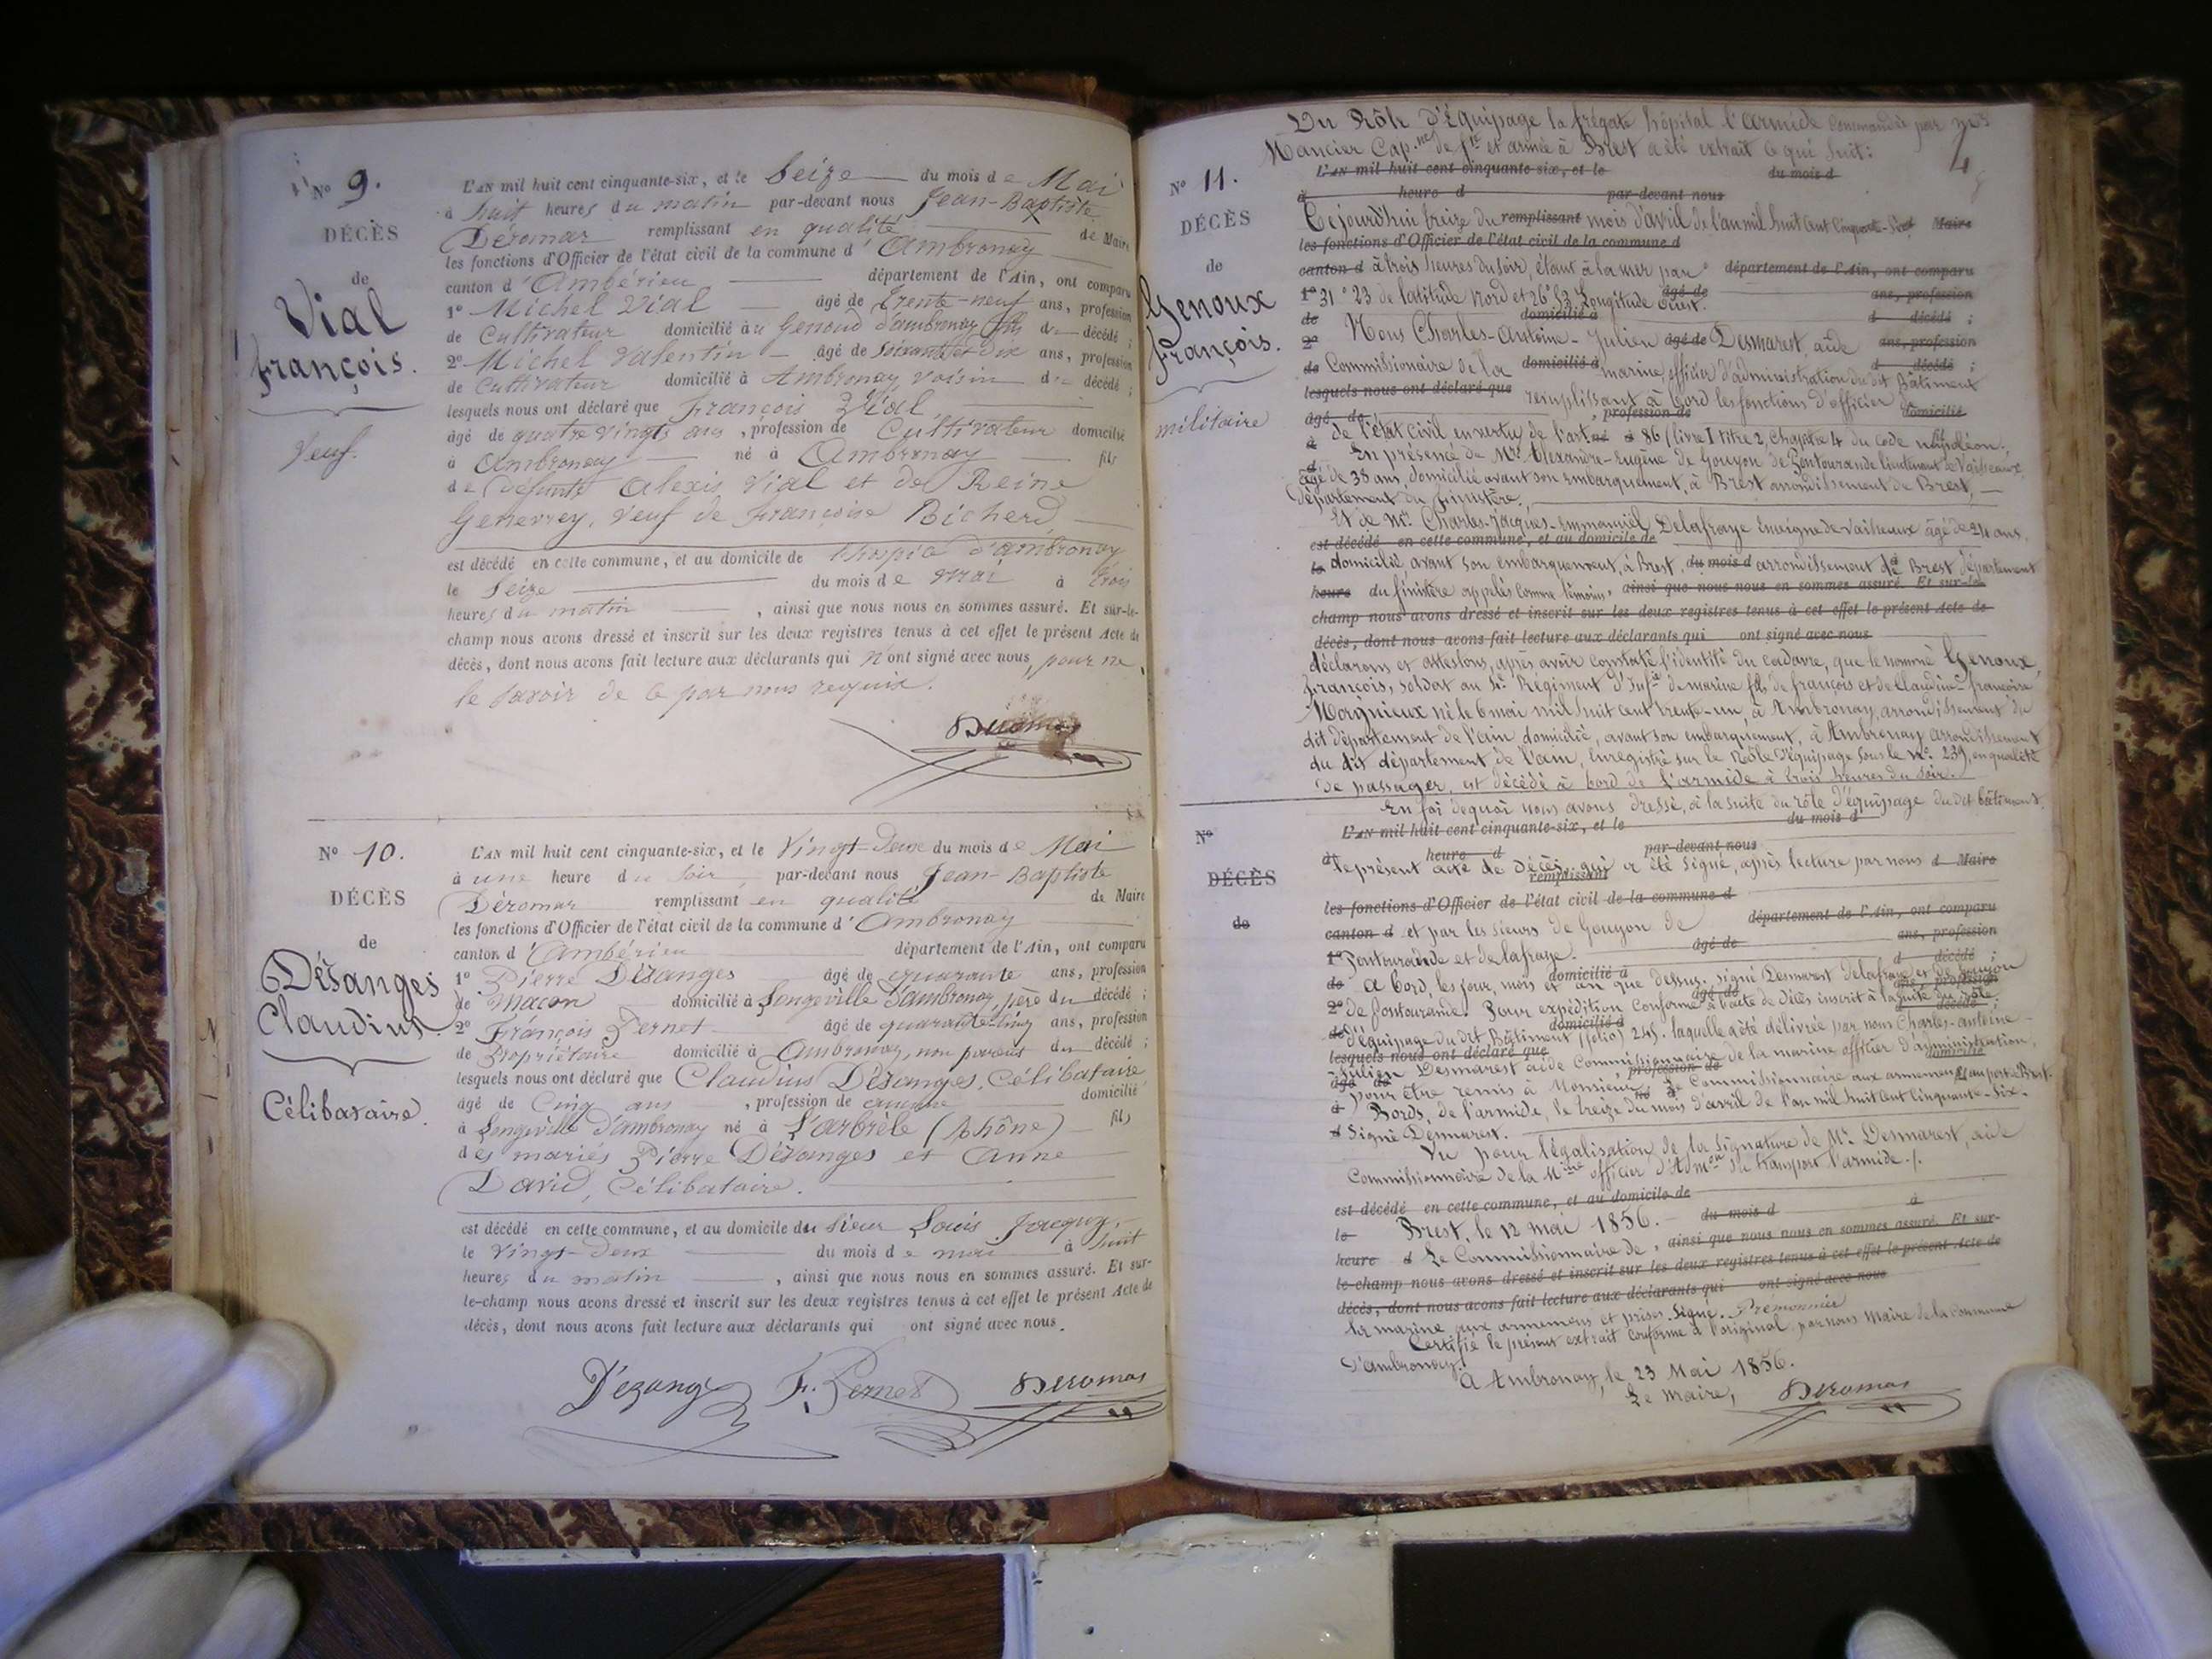 N° 9.
DÉCÈS
de
Vial
François.
Veuf.
L'AN mil huit cent cinquante-six, et le Seize du mois de Mai
à huit heures du matin par-devant nous Jean-Baptiste
Déromas remplissant en qualité de Maire
les fonctions d'Officier de l'état civil de la commune d'Ambronay
canton d'Ambérieu département de l'Ain, ont comparu
1° Michel Vial âgé de trente-neuf ans, profession
de Cultivateur domicilié au Genoud d'ambronay fils du décédé ;
2° Michel Valentin âgé de Soixante et dix ans, profession
de Cultivateur domicilié à Ambronay, voisin du décédé ;
lesquels nous ont déclaré que François Vial
âgé de quatre vingts ans, profession de Cultivateur domicilié
à Ambronay né à Ambronay fils
de défunts Alexis Vial et de Reine
Genevrey, Veuf de Françoise Bicherd,
est décédé en cette commune, et au domicile de l'hospice d'ambronay
le Seize du mois de mai à trois
heures du matin, ainsi que nous nous en sommes assuré. Et sur-le-
champ nous avons dressé et inscrit sur les deux registres tenus à cet effet le présent Acte de
décès, dont nous avons fait lecture aux déclarants qui n'ont signé avec nous, pour ne
le savoir de ce par nous requis.
Déromas
N° 10.
DÉCÈS
de
Désanges
Claudius.
Célibataire.
L'AN mil huit cent cinquante-six, et le Vingt-deux du mois de Mai
à une heure du soir par-devant nous Jean-Baptiste
Déromas remplissant en qualité de Maire
les fonctions d'Officier de l'état civil de la commune d'Ambronay
canton d'Ambérieu département de l'Ain, ont comparu
1° Pierre Désanges âgé de quarante ans, profession
de Maçon domicilié à Longeville d'ambronay, père du décédé ;
2° François Pernet âgé de quarante-cinq ans, profession
de Propriétaire domicilié à Ambronay, non parent du décédé ;
lesquels nous ont déclaré que Claudius Désanges, Célibataire
âgé de Cinq ans, profession de aucune domicilié
à Longeville d'ambronay né à L'arbrêle (Rhône) fils
des mariés Pierre Désanges et Anne
David, Célibataire.
est décédé en cette commune, et au domicile du sieur Louis Jacquy,
le Vingt-deux du mois de mai à huit
heures du matin, ainsi que nous nous en sommes assuré. Et sur-
le-champ nous avons dressé et inscrit sur les deux registres tenus à cet effet le présent Acte de
décès, dont nous avons fait lecture aux déclarants qui ont signé avec nous.
Dézange F. Pernet Déromas
Du Rôle d'équipage la frégate hôpital l'armide Commandée par Mr
Mancier Cap.ne de f.te et armée à Brest a été extrait ce qui suit :
4
N° 11.
DÉCÈS
de
Genoux
François.
militaire
L'AN mil huit cent cinquante-six, et le du mois d
à heure d par-devant nous
Cejourd'hui treize du remplissant mois d'avril de l'an mil huit cent Cinquante-Six Maire
les fonctions d'Officier de l'état civil de la commune d
canton d à trois heures du soir, étant à la mer par département de l'Ain, ont comparu
1° 31° 23 de latitude Nord et 26° 53 Longitude Ouest. âgé de ans, profession
de domicilié à d décédé ;
2° Nous Charles-Antoine-Julien âgé de Desmarest, aide ans, profession
de Commissionaire de la domicilié à marine, officier d'administration du dit Bâtiment d décédé ;
lesquels nous ont déclaré que remplissant à bord les fonctions d'officier
âgé de profession de domicilié
à de l'état civil en vertu de l'art. né à 86 (livre I titre 2, Chapitre 4 du Code napoléon. fil
d En présence de Mr. Alexandre-Eugène de Gouyon de Pontouraude lieutenant de Vaisseaux
âgé de 38 ans, domicilié avant son embarquement, à Brest arrondissement de Brest,
département du finistère.
Et de Mr. Charles-Jacques-Emmanuel Delafraye Enseigne de Vaisseaux âgé de 24 ans,
est décédé en cette commune, et au domicile de
le domicilié avant son embarquement, à Brest, du mois d arrondissement de Brest département
heure du finistère appelés comme témoins, ainsi que nous nous en sommes assuré. Et sur-le-
champ nous avons dressé et inscrit sur les deux registres tenus à cet effet le présent Acte de
décès, dont nous avons fait lecture aux déclarants qui ont signé avec nous
déclarons et attestons, après avoir constaté l'identité du cadavre, que le nommé Genoux,
François, soldat au 4e Régiment d'Inf.ie de marine fils de françois et de Claudine françoise
Morgnieux né le 6 mai mil huit cent trente-un, à Ambronay, arrondissement du
dit département de l'ain domicilié, avant son embarquement, à Ambronay arrondissement
du dit département de l'ain, Enregistré sur le Rôle d'équipage sous le n°. 239, en qualité
de passager, est décédé à bord de l'armide à trois heures du soir.
En foi de quoi nous avons dressé, à la suite du rôle d'équipage du dit bâtiment,
N°
DÉCÈS
de
L'AN mil huit cent cinquante-six, et le du mois d
à heure d par-devant nous
le présent acte de décès, qui a été signé, après lecture par nous d Maire
remplissant
les fonctions d'Officier de l'état civil de la commune d
canton d et par les sieurs de Gouyon de département de l'Ain, ont comparu
1° Pontouraude et delafraye. âgé de ans, profession
de domicilié à d décédé ;
A bord, les jour, mois et an que dessus. signé Desmarest Delafraye et de Gouyon
2° de Pontouraude. Pour expédition Conforme à l'acte de décès inscrit à la suite du rôle
de d'équipage du dit Bâtiment, (folio) 245. laquelle a été délivrée par nous Charles-antoine
lesquels nous ont déclaré que
Julien Desmarest aide Commissionnaire de la marine officier d'administration,
âgé de profession de domicilié
pour être remis à Monsieur le Commissionnaire aux armemens au port de Brest.
à Bords, de l'armide, le treize du mois d'avril de l'an mil huit cent cinquante-Six.
d Signé Desmarest.
Vu pour légalisation de la Signature de Mr. Desmarest, aide
Commissionnaire de la M.ine officier d'Adm.on du transport l'armide./.
est décédé en cette commune, et au domicile de
le Brest, le 12 mai 1856. du mois d à
heure d Le Commissionnaire de, ainsi que nous nous en sommes assuré. Et sur-
le-champ nous avons dressé et inscrit sur les deux registres tenus à cet effet le présent Acte de
décès, dont nous avons fait lecture aux déclarants qui ont signé avec nous
la marine aux armemens et prises. Signé. Prémonnier
Certifié le présent extrait conforme à l'original, par nous Maire de la Commune
d'ambronay.
A Ambronay, le 23 Mai 1856.
Le Maire, Déromas